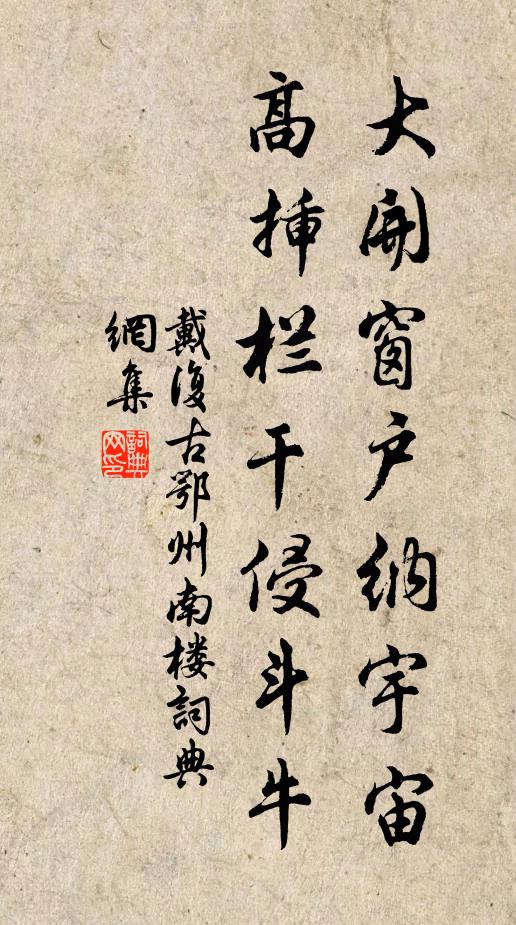 大開窗户纳宇宙
高挿栏干侵斗牛
戴復古鄂州南楼詞典
網集
詞典
网印